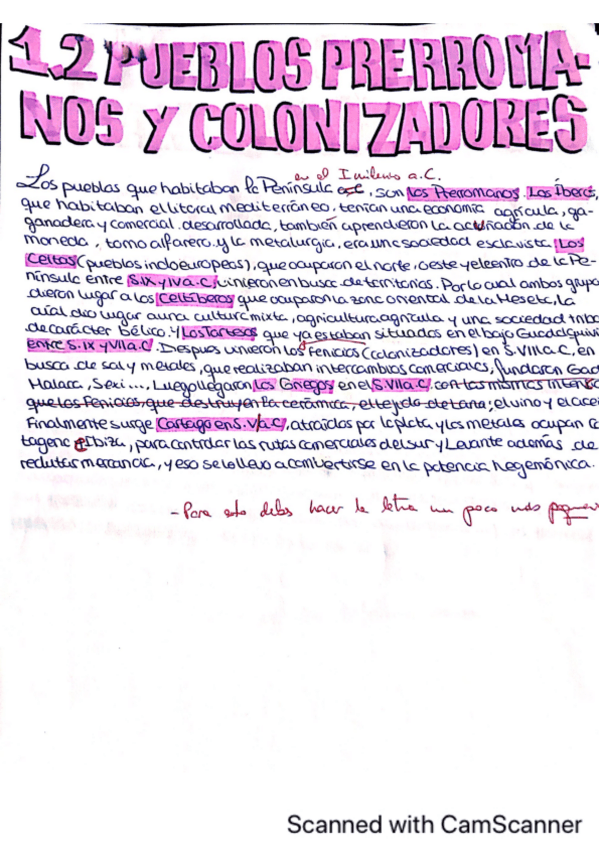 1.2 PUEBLOS PRERROMA-
NOS Y COLONIZADORES
en el I milenio a.C.
Los pueblos que habitaban la Península, son los Prerromanos. Los Íberos,
que habitaban el litoral mediterráneo, tenían una economía agrícula, ga-
nadera y comercial desarrollada, también aprendieron la acuñación de la
moneda, torno alfarero y la metalurgia, era una sociedad esclavista. Los
Celtas (pueblos indoeuropeos), que ocuparon el norte, oeste y el centro de la Pe-
nínsula entre S.IX y IV a.C, vinieron en busca de territorios. Por lo cual ambos grupo
dieron lugar a los Celtíberos que ocuparon la zona oriental de la Meseta, la
cúal dio lugar a una cultura mixta, agricultura agrícula y una sociedad triba
de carácter Bélico. Y Los Tartesos que ya estaban situados en el bajo Guadalquivi
entre S. IX y VII a.C. Despues vinieron los fenicios (colonizadores) en S.VIII a.C, en
busca de sal y metales, que realizaban intercambios comerciales, fundaron Gad
Malaca, Sexi..., Luego llegaron Los Griegos en el S.VII a.C. con las mismas intenc
que los Fenicios, que destruyen la cerámica, el tejido de lana; el vino y el acei
Finalmente surge Cartago en S.V a.C, atraídos por la plata y los metales ocupan Ca
tagena e Ibiza, para controlar las rutas comerciales del sur y Levante además de
reclutas mercancia, y eso se lo llevo a combertirse en la potencia hegemónica.
- Para esto debes hacer la letra un poco más
Scanned with CamScanner